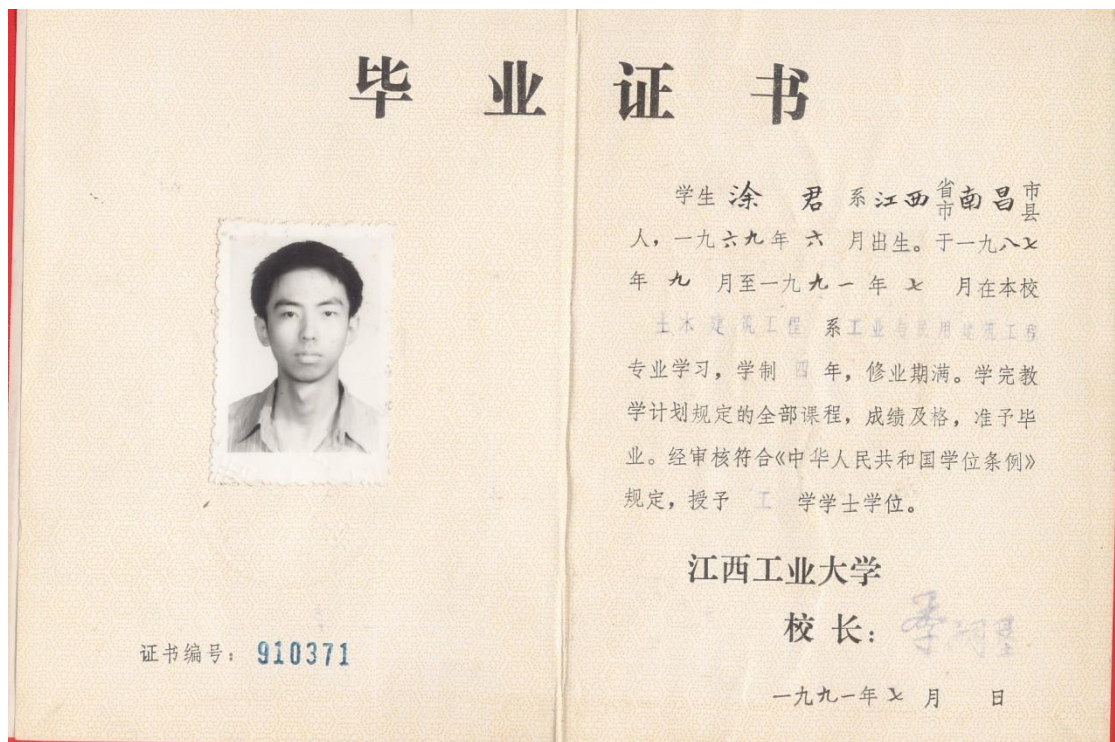 毕业证书
学生 涂 君 系江西省市南昌市县
人，一九六九年 六 月出生。于一九八七
年 九 月至一九九一年 七 月在本校
土木建筑工程 系工业与民用建筑工程
专业学习，学制 四 年，修业期满。学完教
学计划规定的全部课程，成绩及格，准予毕
业。经审核符合《中华人民共和国学位条例》
规定，授予 工 学学士学位。
江西工业大学
校 长：
一九九一年 七 月 日
证书编号：910371